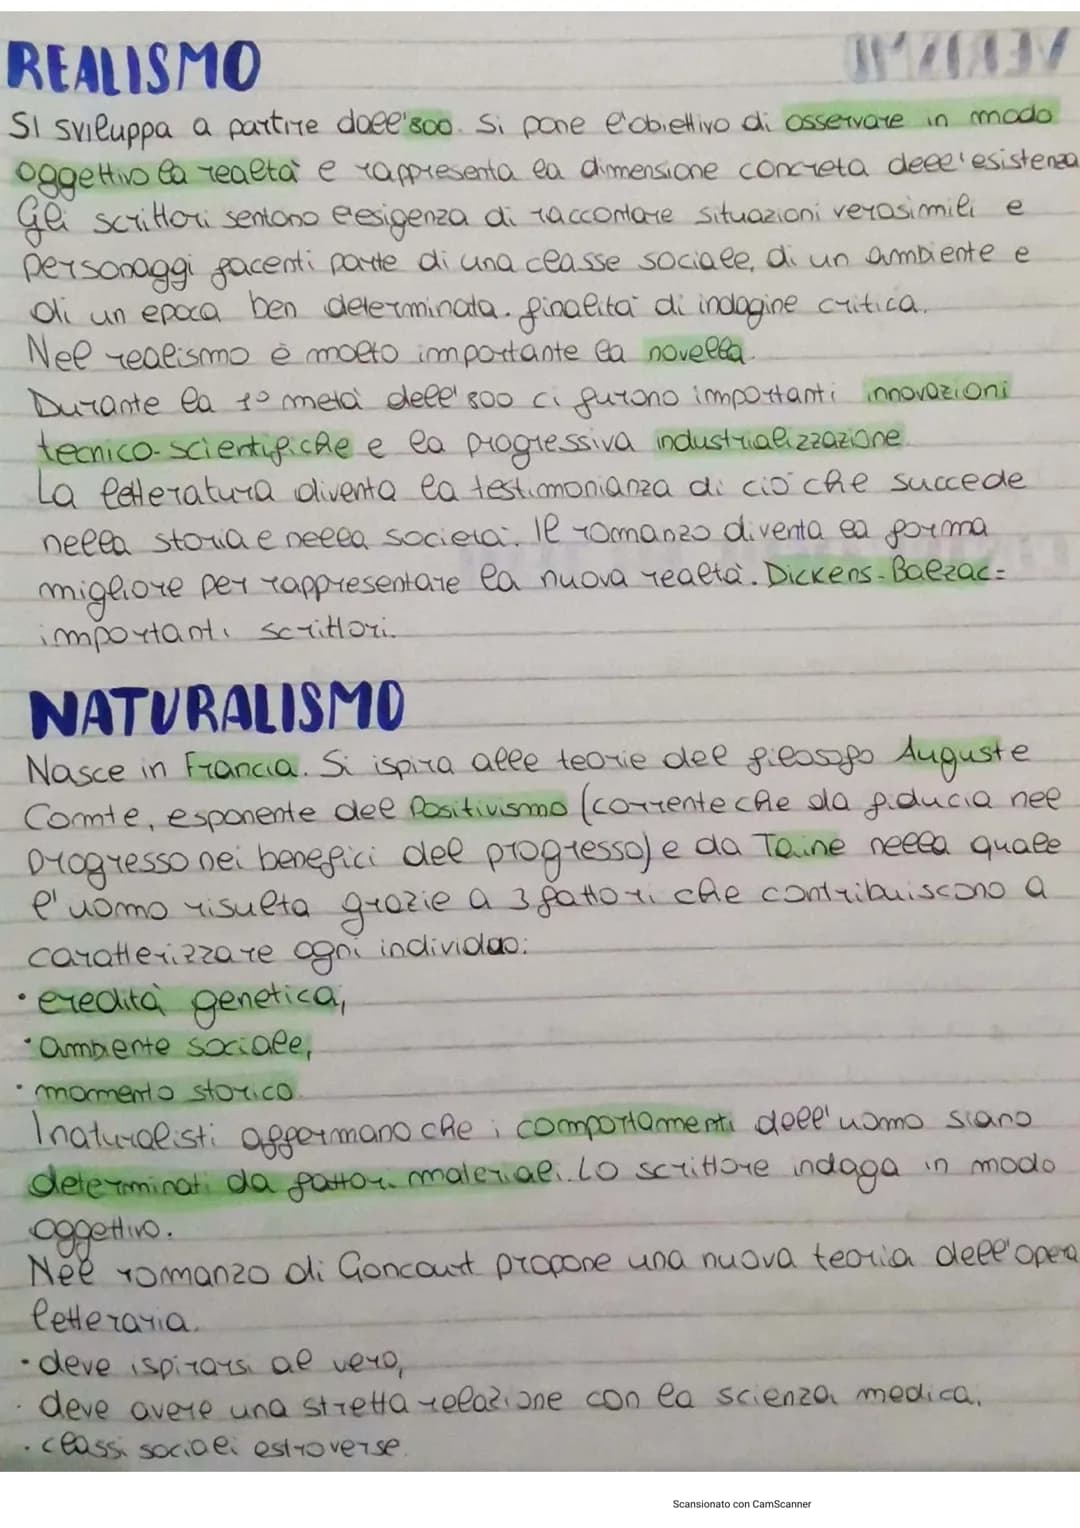 REALISMO
VERISMO
Si sviluppa a partire dall'800. Si pone l'obiettivo di osservare in modo
oggettivo la realtà e rappresenta la dimensione concreta dell'esistenza
Gli scrittori sentono l'esigenza di raccontare situazioni verosimili e
personaggi facenti parte di una classe sociale, di un ambiente e
di un epoca ben determinata. finalità di indagine critica.
Nel realismo è molto importante la novella.
Durante la 1° metà dell'800 ci furono importanti innovazioni
tecnico-scientifiche e la progressiva industrializzazione.
La letteratura diventa la testimonianza di ciò che succede
nella storia e nella società. Il romanzo diventa la forma
migliore per rappresentare la nuova realtà. Dickens-Balzac=
importanti scrittori.
NATURALISMO
Nasce in Francia. Si ispira alle teorie del filosofo Auguste
Comte, esponente del Positivismo (corrente che da fiducia nel
progresso nei benefici del progresso) e da Taine nella quale
l'uomo risulta grazie a 3 fattori che contribuiscono a
caratterizzare ogni individuo:
• eredità genetica,
• ambiente sociale,
• momento storico.
I naturalisti affermano che i comportamenti dell'uomo siano
determinati da fattori materiali. Lo scrittore indaga in modo
oggettivo.
Nel romanzo di Goncourt propone una nuova teoria dell'opera
letteraria.
• deve ispirarsi al vero,
• deve avere una stretta relazione con la scienza medica,
• classi sociali estroverse.
Scansionato con CamScanner